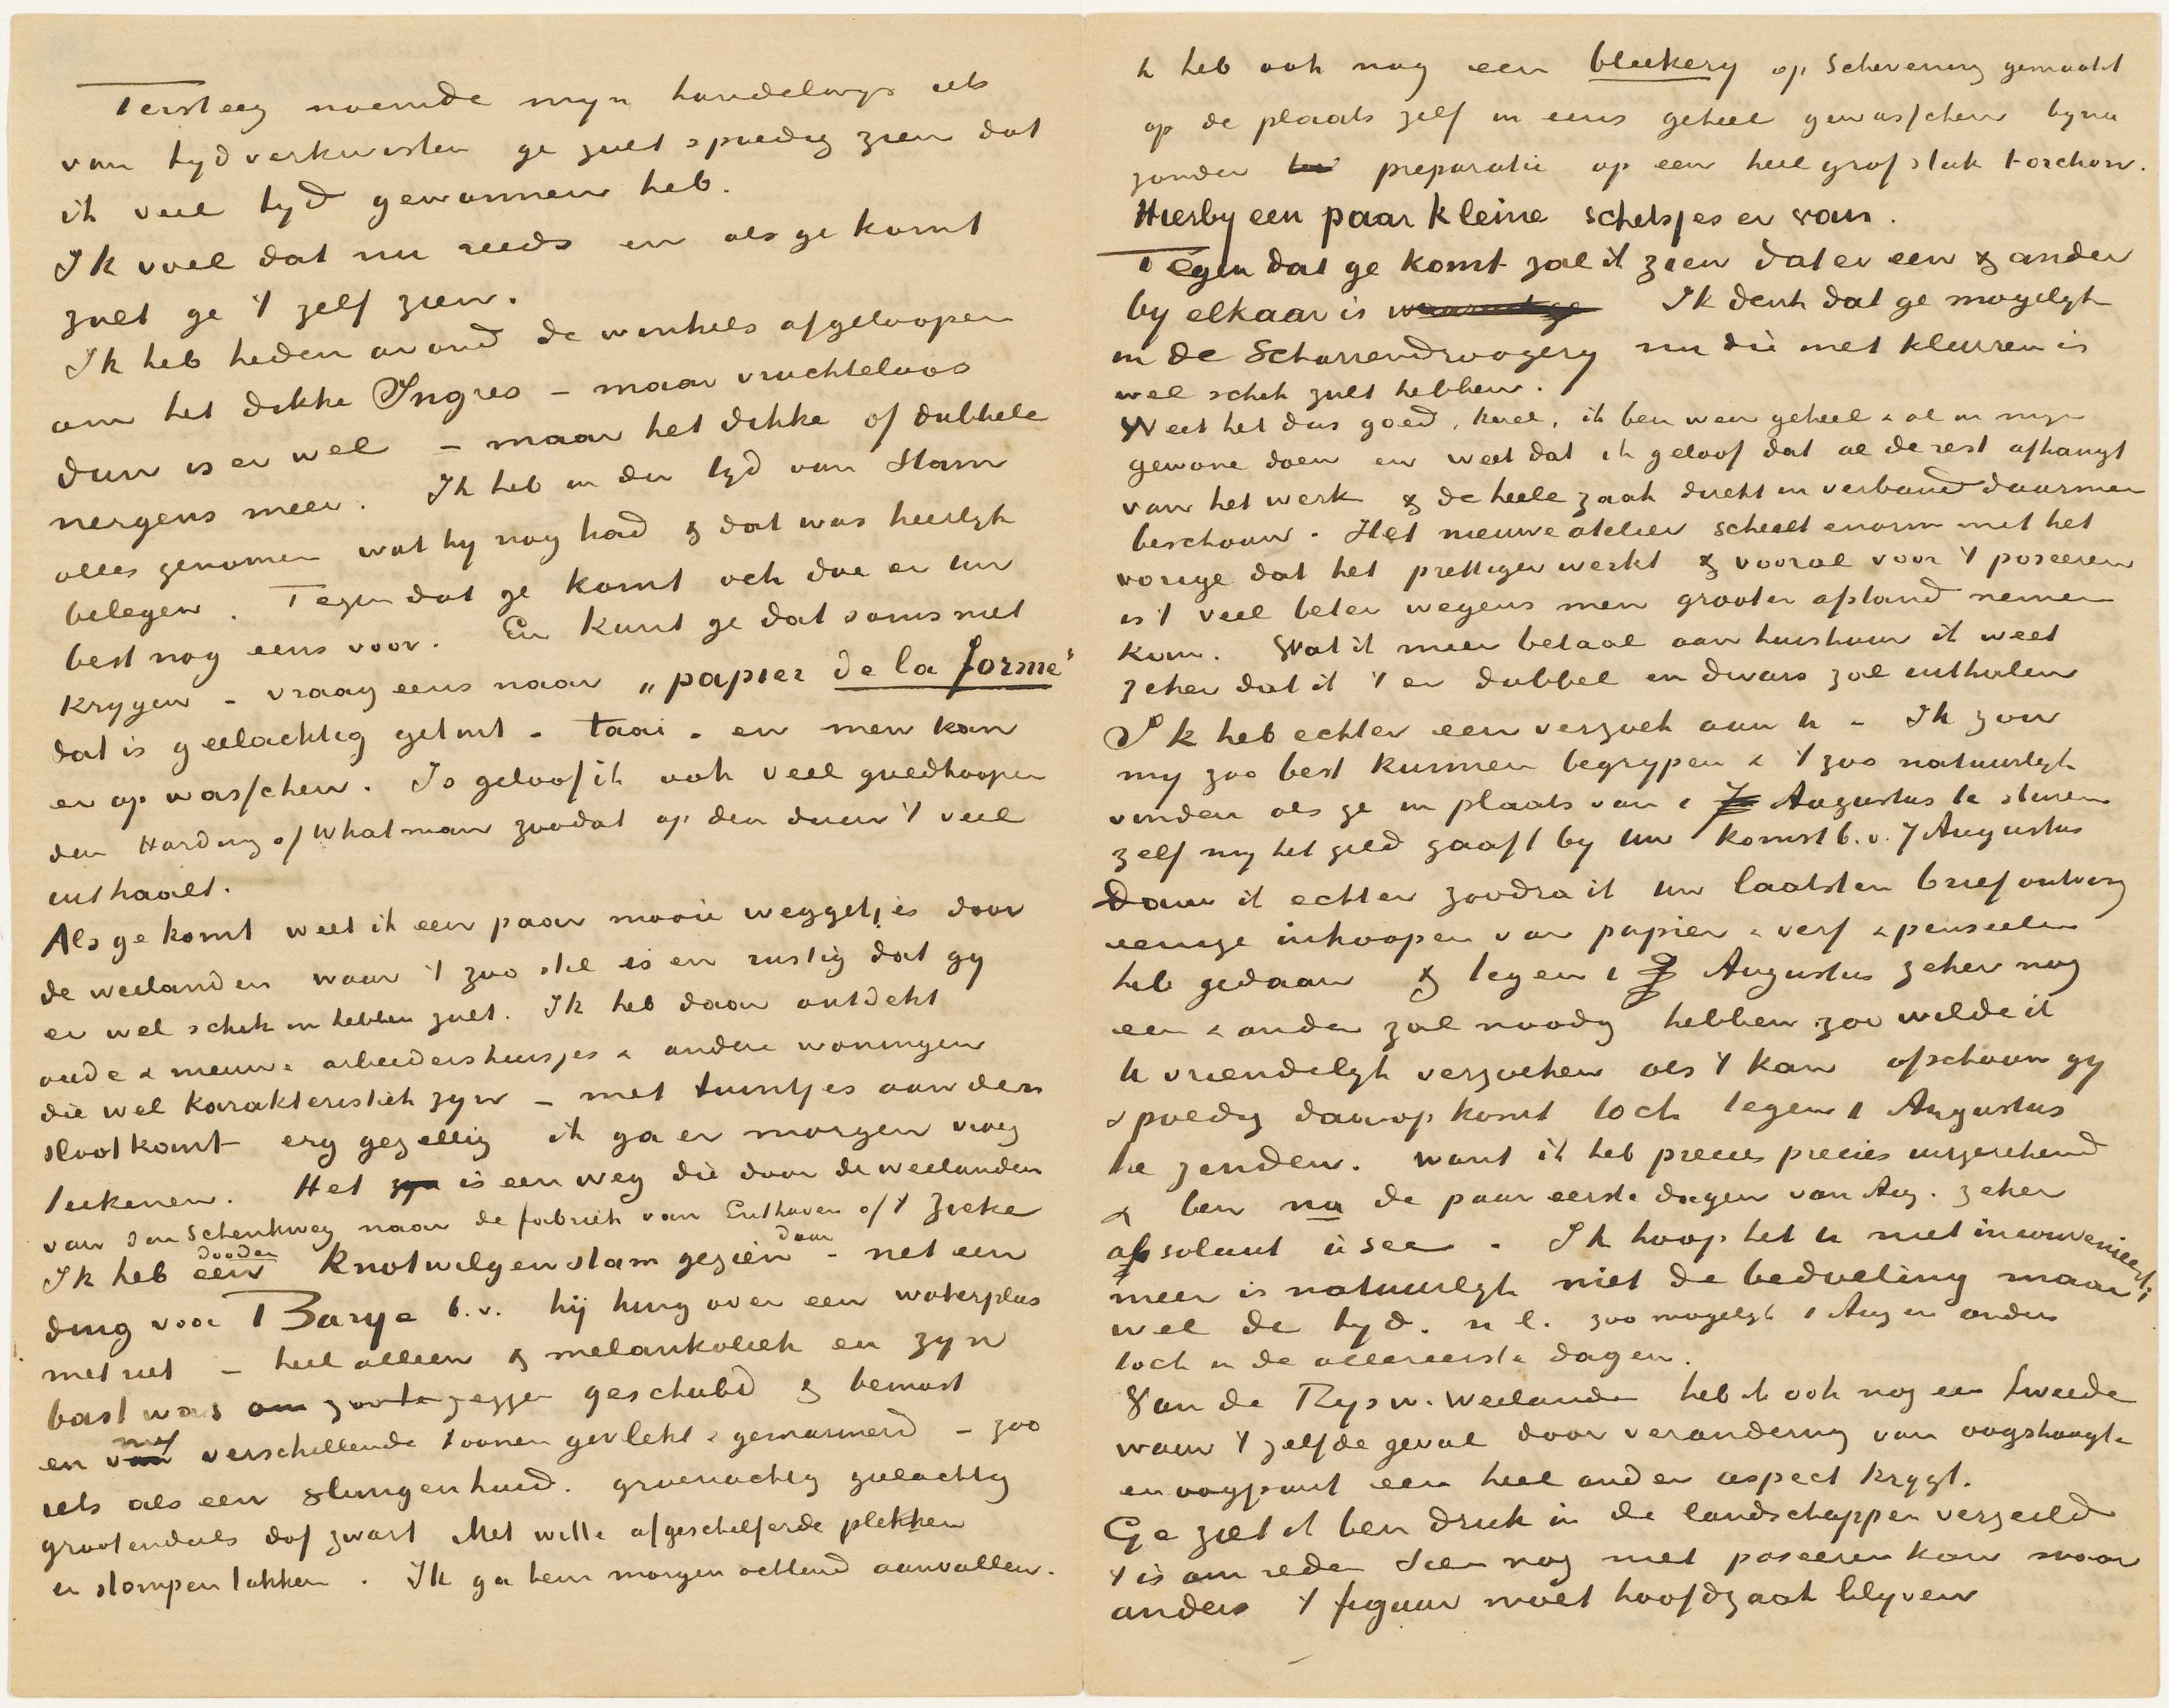 Tersteeg noemde mijn handelwijs iets
van tijdverkwisten ge zult spoedig zien dat
ik veel tijd gewonnen heb.
Ik voel dat nu reeds en als ge komt
zult ge 't zelf zien.
Ik heb heden avond de winkels afgeloopen
om het dikke Ingres – maar vruchteloos
dun is er wel – maar het dikke of dubbele
nergens meer. Ik heb in der tijd van Stam
alles genomen wat hij nog had & dat was heerlijk
belegen. Tegen dat ge komt och doe er uw
best nog eens voor. En kunt ge dat soms niet
krijgen – vraag eens naar „papier de la forme"
dat is geelachtig getint – taai – en men kan
er op wasschen. Is geloof ik ook veel goedkooper
dan Harding of Whatman zoodat op den duur 't veel
uithaalt.
Als ge komt weet ik een paar mooie weggetjes door
de weilanden waar 't zoo stil is en rustig dat gij
er wel schik in hebben zult. Ik heb daar ontdekt
oude & nieuwe arbeidershuisjes & andere woningen
die wel karakteristiek zijn – met tuintjes aan den
slootkant erg gezellig ik ga er morgen vroeg
teekenen. Het zijn is een weg die door de weilanden
van den Schenkweg naar de fabriek van Enthoven of 't Zieke
Ik heb een dooden knotwilgenstam gezien daar – net een
ding voor Barye b.v. hij hing over een waterplas
met riet – heel alleen & melankoliek en zijn
bast was om zoo te zeggen geschubd & bemost
en van met verschillende toonen gevlekt & gemarmerd – zoo
iets als een slangenhuid. groenachtig geelachtig
grootendeels dof zwart Met witte afgeschilferde plekken
en stompen takken. Ik ga hem morgen ochtend aanvallen.
Ik heb ook nog een bleekerij op Schevening gemaakt
op de plaats zelf in eens geheel gewasschen bijna
zonder preparatie op een heel grof stuk torchon.
Hierbij een paar kleine schetsjes er van.
Tegen dat ge komt zal ik zien dat er een & ander
bij elkaar is Ik denk dat ge mogelijk
in de Scharrendroogerij nu die met kleuren is
wel schik zult hebben.
Weet het dus goed, kerel, ik ben weer geheel & al in mijn
gewone doen en weet dat ik geloof dat al de rest afhangt
van het werk & de heele zaak direkt in verband daarmee
beschouw. Het nieuwe atelier scheelt enorm met het
vorige dat het prettiger werkt & vooral voor 't poseeren
is 't veel beter wegens men grooter afstand nemen
kan. Wat ik meer betaal aan huishuur ik weet
zeker dat ik 't er dubbel en dwars zal uithalen
Ik heb echter een verzoek aan u – Ik zou
mij zoo best kunnen begrijpen & 't zoo natuurlijk
vinden als ge in plaats van 1 Augustus te sturen
zelf mij het geld gaaft bij uw komst b.v. 7 Augustus
Daar ik echter zoodra ik uw laatsten brief ontving
eenige inkoopen van papier & verf & penseelen
heb gedaan & tegen 1 Augustus zeker nog
een & ander zal noodig hebben zoo wilde ik
u vriendelijk verzoeken als 't kan ofschoon gij
spoedig daarop komt toch tegen 1 Augustus
te zenden. want ik heb precies precies uitgerekend
& ben na de paar eerste dagen van Aug. zeker
absoluut à sec. Ik hoop het u niet inconvenieert,
meer is natuurlijk niet de bedoeling maar
wel de tijd. n l. zoo mogelijk 1 Aug en anders
toch in de allereerste dagen.
Van de Rijsw. weilanden heb ik ook nog een tweede
waar 't zelfde geval door verandering van oogshoogte
en oogpunt een heel ander aspect krijgt.
Ge ziet ik ben druk in de landschappen verzeild
't is om reden Sien nog niet poseeren kan maar
anders 't figuur moet hoofdzaak blijven